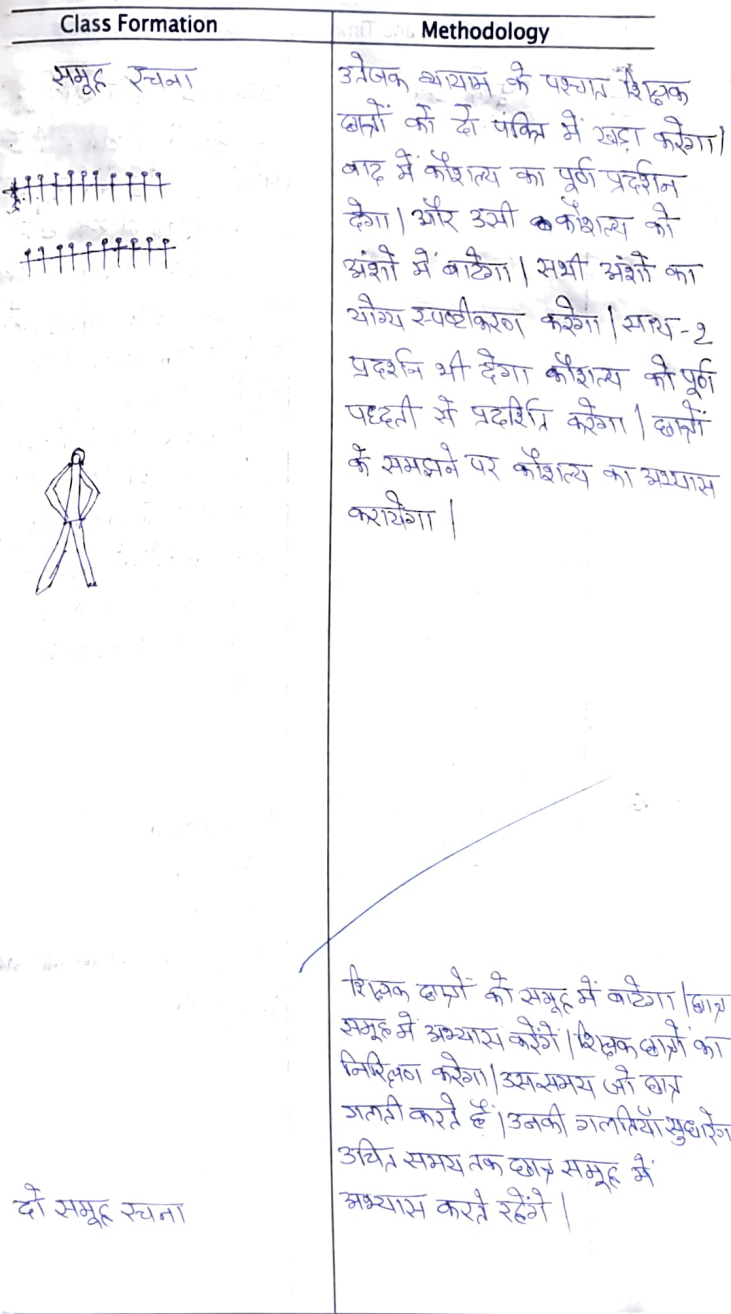 Class Formation
Methodology
समूह रचना
उतेजक व्यायाम के पश्चात शिक्षक
छात्रों को दो पंक्ति में खड़ा करेगा।
बाद में कौशल्य का पूर्ण प्रदर्शन
देगा। और उसी कौशल्य को
अंशो में बाटेगा। सभी अंशों का
योग्य स्पष्टीकरण करेगा। साथ-२
प्रदर्शन भी देगा कौशल्य को पूर्ण
पध्दती से प्रदर्शित करेगा। छात्रों
के समझने पर कौशल्य का अभ्यास
करायेगा।
शिक्षक छात्रों को समूह में बाटेगा। छात्र
समूह में अभ्यास करेंगे। शिक्षक छात्रों का
निरिक्षण करेगा। उस समय जो छात्र
गलती करते हैं। उनकी गलतियाँ सुधारेंग
उचित समय तक छात्र समूह में
अभ्यास करते रहेंगे।
दो समूह रचना